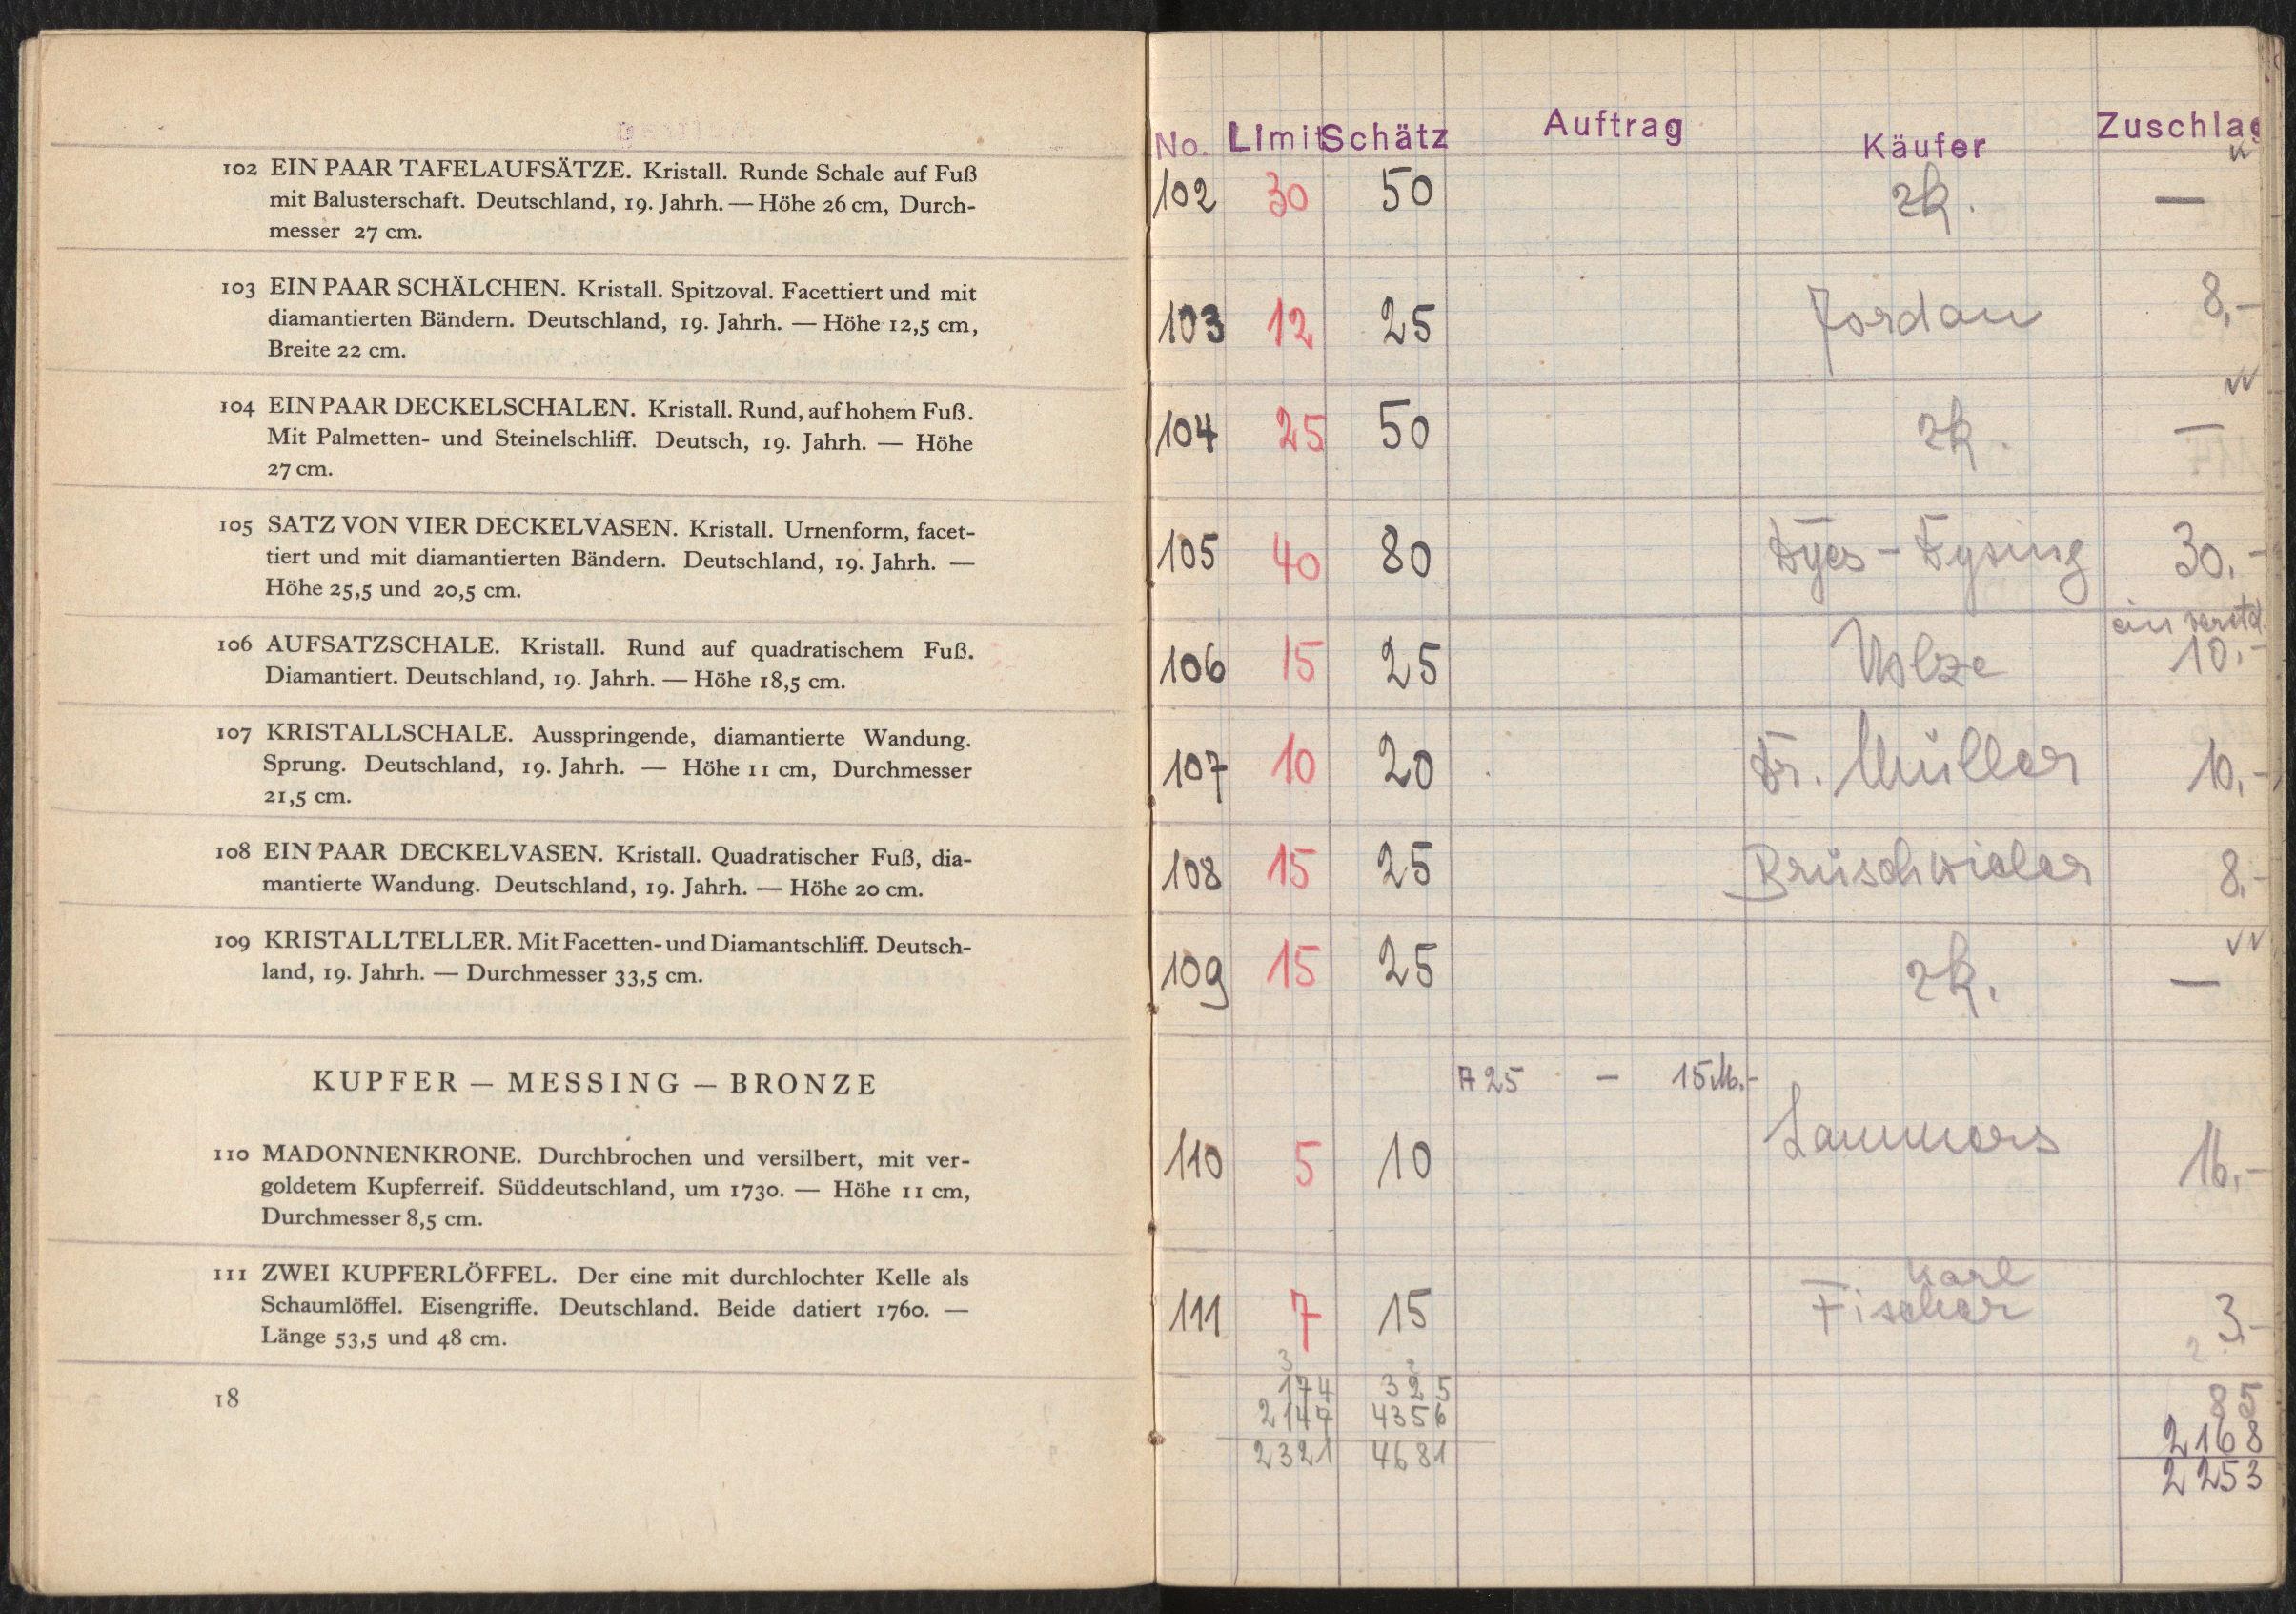 102 EIN PAAR TAFELAUFSÄTZE. Kristall. Runde Schale auf Fuß
mit Balusterschaft. Deutschland, 19. Jahrh. — Höhe 26 cm, Durch-
messer 27 cm.
103 EIN PAAR SCHÄLCHEN. Kristall. Spitzoval. Facettiert und mit
diamantierten Bändern. Deutschland, 19. Jahrh. — Höhe 12,5 cm,
Breite 22 cm.
104 EIN PAAR DECKELSCHALEN. Kristall. Rund, auf hohem Fuß.
Mit Palmetten- und Steinelschliff. Deutsch, 19. Jahrh. — Höhe
27 cm.
105 SATZ VON VIER DECKELVASEN. Kristall. Urnenform, facet-
tiert und mit diamantierten Bändern. Deutschland, 19. Jahrh. —
Höhe 25,5 und 20,5 cm.
106 AUFSATZSCHALE. Kristall. Rund auf quadratischem Fuß.
Diamantiert. Deutschland, 19. Jahrh. — Höhe 18,5 cm.
107 KRISTALLSCHALE. Ausspringende, diamantierte Wandung.
Sprung. Deutschland, 19. Jahrh. — Höhe 11 cm, Durchmesser
21,5 cm.
108 EIN PAAR DECKELVASEN. Kristall. Quadratischer Fuß, dia-
mantierte Wandung. Deutschland, 19. Jahrh. — Höhe 20 cm.
109 KRISTALLTELLER. Mit Facetten- und Diamantschliff. Deutsch-
land, 19. Jahrh. — Durchmesser 33,5 cm.
KUPFER — MESSING — BRONZE
110 MADONNENKRONE. Durchbrochen und versilbert, mit ver-
goldetem Kupferreif. Süddeutschland, um 1730. — Höhe 11 cm,
Durchmesser 8,5 cm.
111 ZWEI KUPFERLÖFFEL. Der eine mit durchlochter Kelle als
Schaumlöffel. Eisengriffe. Deutschland. Beide datiert 1760. —
Länge 53,5 und 48 cm.
18
No. Limit Schätz Auftrag Käufer Zuschlag
102 30 50 —
103 12 25 Jordan 8,-
104 25 50 —
105 40 80 Dyes - Dysing 30.-
einverstd.
106 15 25 10.-
107 10 20 Dr. Müller 10,-
108 15 25 Brüschwieler 8.-
109 15 25 —
A 25 - 15 M.-
110 5 10 Lammers 16.-
Karl
111 7 15 Fischer 3.-
174 325 85
2147 4356 2168
2321 4681 2253